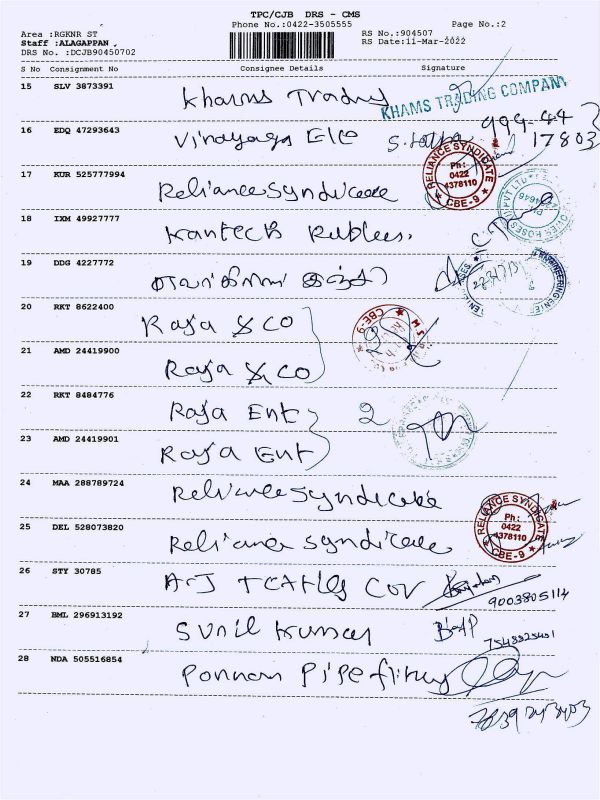 TPC/CJB DRS - CMS
Phone No.:0422-3505555 Page No.:2
Area :RGKNR ST RS No.:904507
Staff :ALAGAPPAN , RS Date:11-Mar-2022
DRS No. :DCJB90450702
S No Consignment No Consignee Details Signature
15 SLV 3873391 Khams Trading KHAMS TRADING COMPANY
16 EDQ 47293643 Vinayaga Ele 999-44
17803
17 KUR 525777994 Reliance Syndicate RELIANCE SYNDICATE Ph: 0422 4378110 CBE-9
18 IXM 49927777 Kantech
19 DDG 4227772
20 RKT 8622400 Raja & CO CBE-9
21 AMD 24419900 Raja & CO
22 RKT 8484776 Raja Ent 2
23 AMD 24419901 Raja Ent
24 MAA 288789724 Reliance Syndicate
25 DEL 528073820 Reliance Syndicate RELIANCE SYNDICATE Ph: 0422 4378110 CBE-9
26 STY 30785
9003805114
27 BML 296913192 Sunil Kumar
28 NDA 505516854 Ponnan Pipe